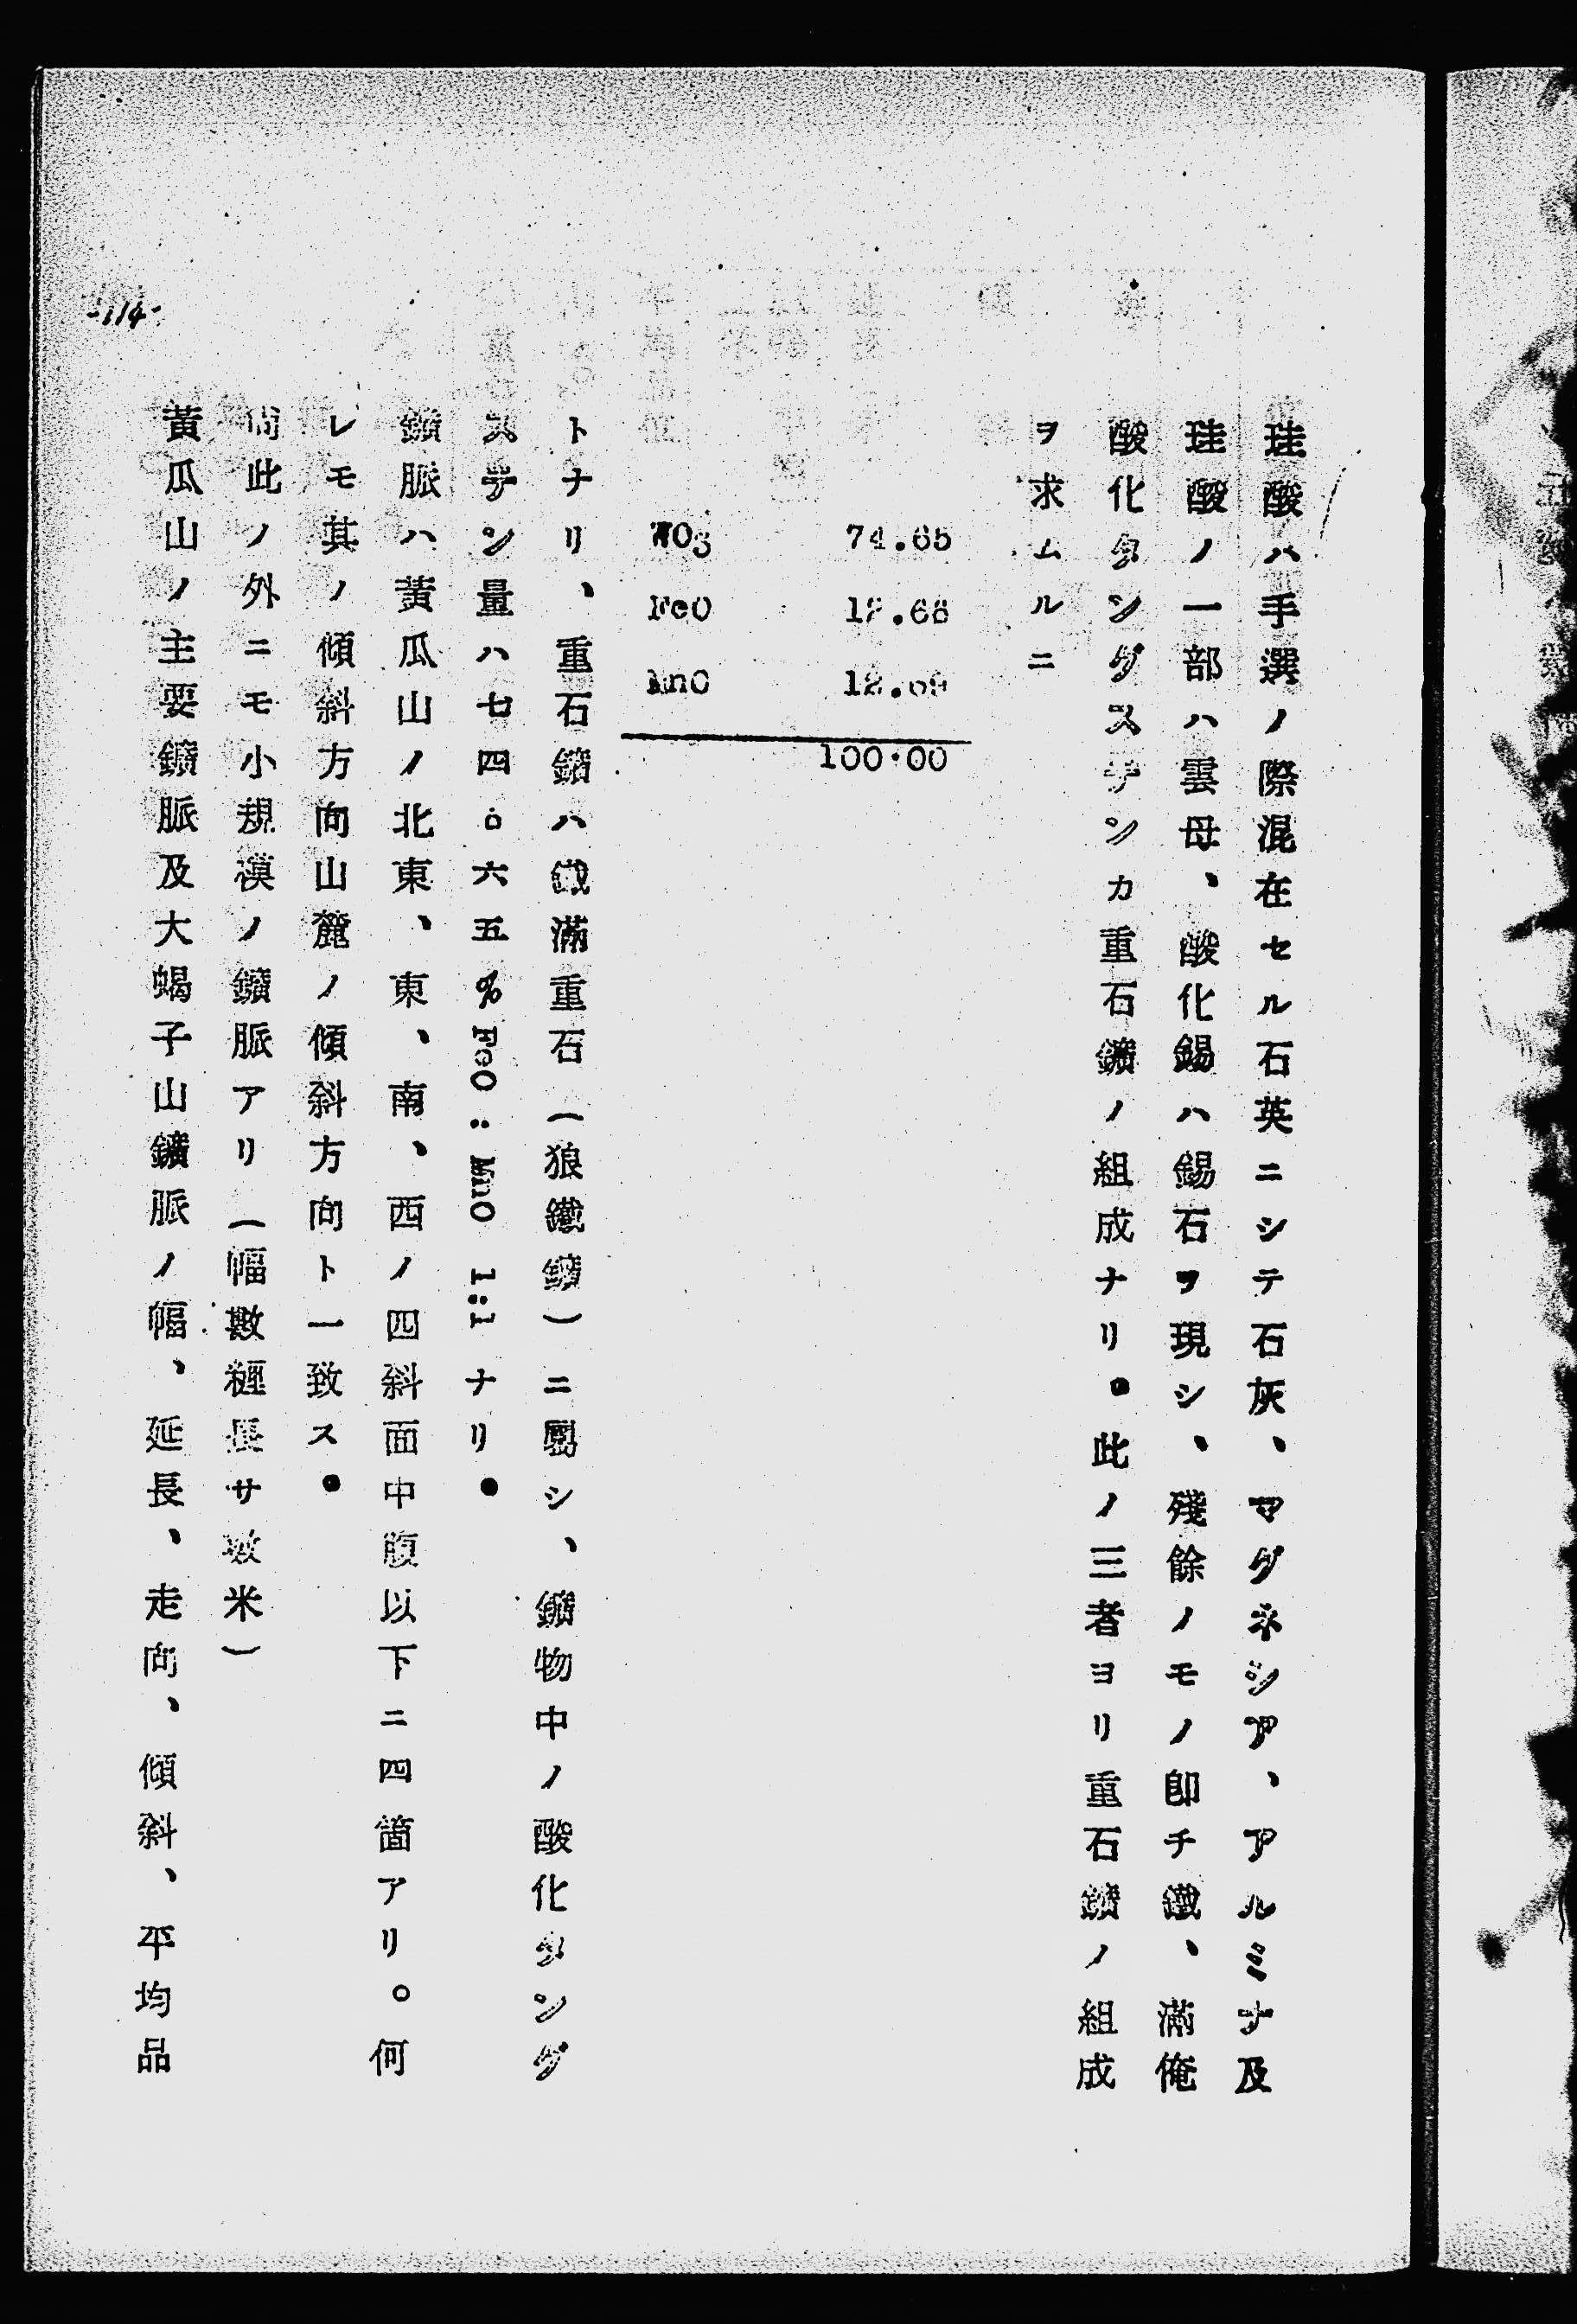 珪酸ハ手選ノ際混在セル石英ニシテ石灰、マグネシア、アルミナ及
珪酸ノ一部ハ雲母、酸化錫ハ錫石ヲ現シ、殘餘ノモノ卽チ鐵、滿俺
酸化タングステンカ重石鑛ノ組成ナリ。此ノ三者ヨリ重石鑛ノ組成
ヲ求ムルニ
WO3 74.65
FeO 12.66
MnO 12.69
100.00
トナリ、重石鑛ハ鐵滿重石(狼鐵鑛)ニ屬シ、鑛物中ノ酸化タング
ステン量ハ七四.六五% FeO:MnO 1:1 ナリ。
鑛脈ハ黃瓜山ノ北東、東、南、西ノ四斜面中腹以下ニ四箇アリ。何
レモ其ノ傾斜方向山麓ノ傾斜方向ト一致ス。
尙此ノ外ニモ小規模ノ鑛脈アリ(幅數糎長サ數米)
黃瓜山ノ主要鑛脈及大蝎子山鑛脈ノ幅、延長、走向、傾斜、平均品
-114-